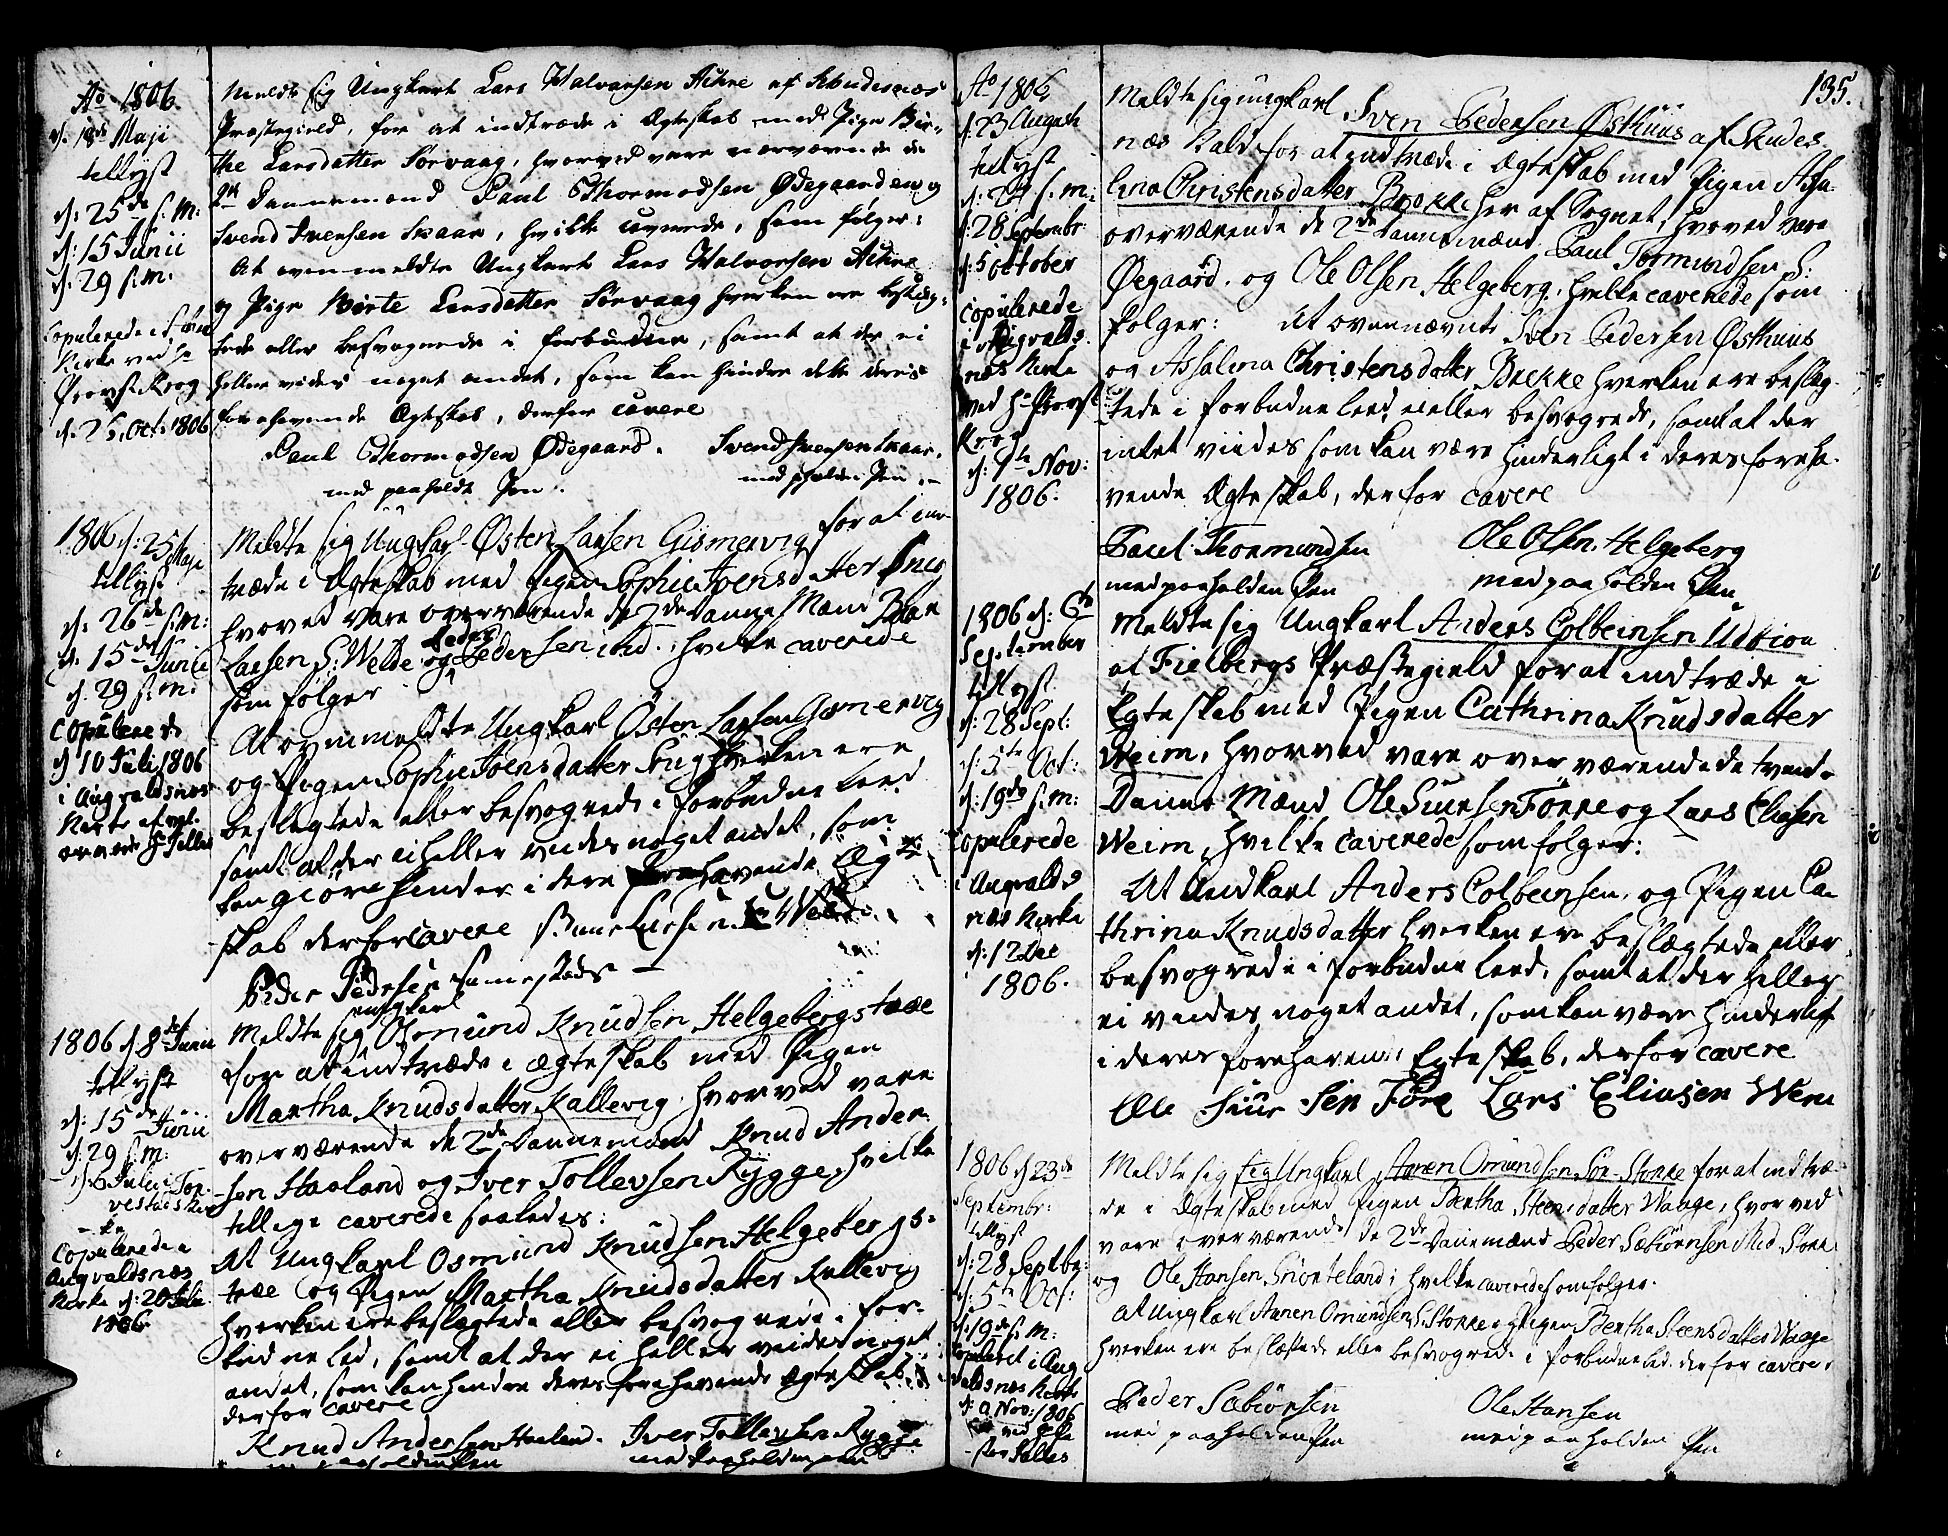 Ao 1806
d: 18de Maji
tillyst
d: 25de s: M:
d: 15 Junii
d: 29 s: m:
Copulerede i
Kirke ved Hr
Provst Krog
d: 26 Oct: 1806
Meldte sig Ungkarl Lars Halvorsen Ackre af Skudesnæs
Præstegield, for at indtræde i Ægteskab med Pige Bir-
the Larsdatter Sørvaag, hvorved vare nærværende de
2de Dannemænd Paul Thormodsen Ødegaarden og
Svend Iversen Skaar, hvilke caverede, som følger:
At ovenmeldte Ungkarl Lars Halvorsen Ackre
og Pige Birte Larsdatter Sørvaag hverken ere beslæg-
tede eller besvogrede i forbudne, samt at der ei
heller vides noget andet, som kan hindre dette deres
forehavende Ægteskab, derfor cavere
Paul Thormodsen Ødegaard. Svend Iversen Skaar.
med paaholdt Pen. med paaholden Pen.
1806 d: 25 Maji
tillyst
d: 26de s: m:
d: 15de Junii
d: 29 s: m:
Copulerede
d 10 Juli 1806
i Augvaldsnæs
Kirke af vel-
ærværd: Hr Selles
Meldte sig Ungkarl Østen Larsen Gismervig for at ind-
træde i Ægteskab med Pigen Sophie Joensdatter Snig
hvoved vare overværende de 2de Danne Mænd
Larsen S: Welde og Peder Pedersen ibd., hvilke caverede
som følger
At ovenmeldte Ungkarl Østen Larsen Gismervig
og Pigen Sophie Joensdatter Snig hverken ere
beslegtede eller besvogrede i forbudne Leed
samt at der ei heller vides noget andet, som
kan giøre hinder i dere forehavende Ægte
skab derfor cavere Larsen
Peder Pedersen samestæds —
1806 d 8de Junii
tillyst
d: 15de Junii
d: 29 s: m:
d: 6 Julii i Tor-
vestads Kir-
ke
Copulerede i
Augvaldsnæs
Kirke d: 20 Julii
1806
ungkarl
Meldte sig Osmund Knudsen Helgebergstræe
for at indtræde i Ægteskab med Pigen
Martha Knudsdatter Kallevig. hvorved vare
overværende de 2de Dannemænd Knud Ander-
sen Haaland og Iver Tollevsen Rygge, hvilke
tillige caverede saaledes:
At Ungkarl Osmund Knudsen Helgebergs-
træe og Pigen Martha Knudsdatter Kallevig
hverken ere beslegtede eller besvogrede i for-
budne led, samt at der ei heller veides noget
andet, som kan hendre deres forehavende Ægteskab
derfor cavere
Knud Andersen Haaland. Iver Tollevsen Rygge
med paaholden Pen
135.
Ao 1806
d: 23 August
tillyst
d: 24 s: m:
d: 28 Septembr
d: 5 October
copulerede
i Augvalds-
næs Kirke
ved Hr Provst
Krog
d: 9de Nov:
1806.
Meldte sig ungkarl Sven Pedersen Østhuus af Skudes-
næs Kald for at indtræde i Ægteskab med Pigen Assa-
lina Christensdatter Brekke her af Sognet, hvoved vare
overværende de 2de Dannemænd Paul Tormundsen S:
Øegaard. og Ole Olsen Helgeberg, hvilke caverede som
følger: At ovennævnte Sven Pedersen Østhuus
og Assalina Christensdatter Brekke hverken ere beslæg-
tede i forbudne leed eller besvogrede, samt at der
intet viides som kan være hinderligt i deres foreha-
vende Ægteskab, derfor cavere
Paul Thormundsen Ole Olsen Helgeberg
med paaholden Pen med paaholden Pen
1806 d: 6te
September
tillyst
d: 28 Sept:
d: 5te Oct:
d: 19de s: m:
Copulerede
i Augvalds
næs Kirke
d: 12 Dec
1806.
Meldte sig Ungkarl Anders Colbeinsen Udøion
af Fielbergs Præstegield for at indtræde i
Egteskab med Pigen Cathrina Knudsdatter
Weim, hvorved vare overværende de tvende
Danne Mænd Ole Siursen Førre og Lars Eliasen
Weim, hvilke caverede som følger:
At Undkarl Anders Colbeinsen, og Pigen Ca-
thrina Knudsdatter hverken ere beslægtede eller
besvogrede i forbudne leed, samt at der heller
ei vides noget andet, som kan være hinderligt
i deres forehavende Egteskab, derfor cavere
Ole Siursen Føre Lars Eliasen Weim
1806 d 23de
Septembr:
tillyst
d: 28 Septbr:
d: 5te Oct:
d: 19de s: m:
Copuleret i Aug
valdsnæs Kirke
Nov: 1806
ved Hr Pa
stor Selles
Meldte sig sig Ungkarl Aanen Omundsen Sør-Stokke for at indtræ-
de i Ægteskab med Pigen Bertha Steensdatter Waage, hvorved
vare overværende de 2de Dannemænd Peder Sæbiørnsen Mid-Stokke
og Ole Hansen Snorteland; hvilke caverede som følger.
at Ungkarl Aanen Omundsen S: Stokke og Pigen Bertha Steensdatter Waage
hverken ere beslægtede eller besvogrede i forbudne led. derfor cavere
Peder Sæbiørnsen Ole Hansen
med paaholden Pen med paaholden Pen